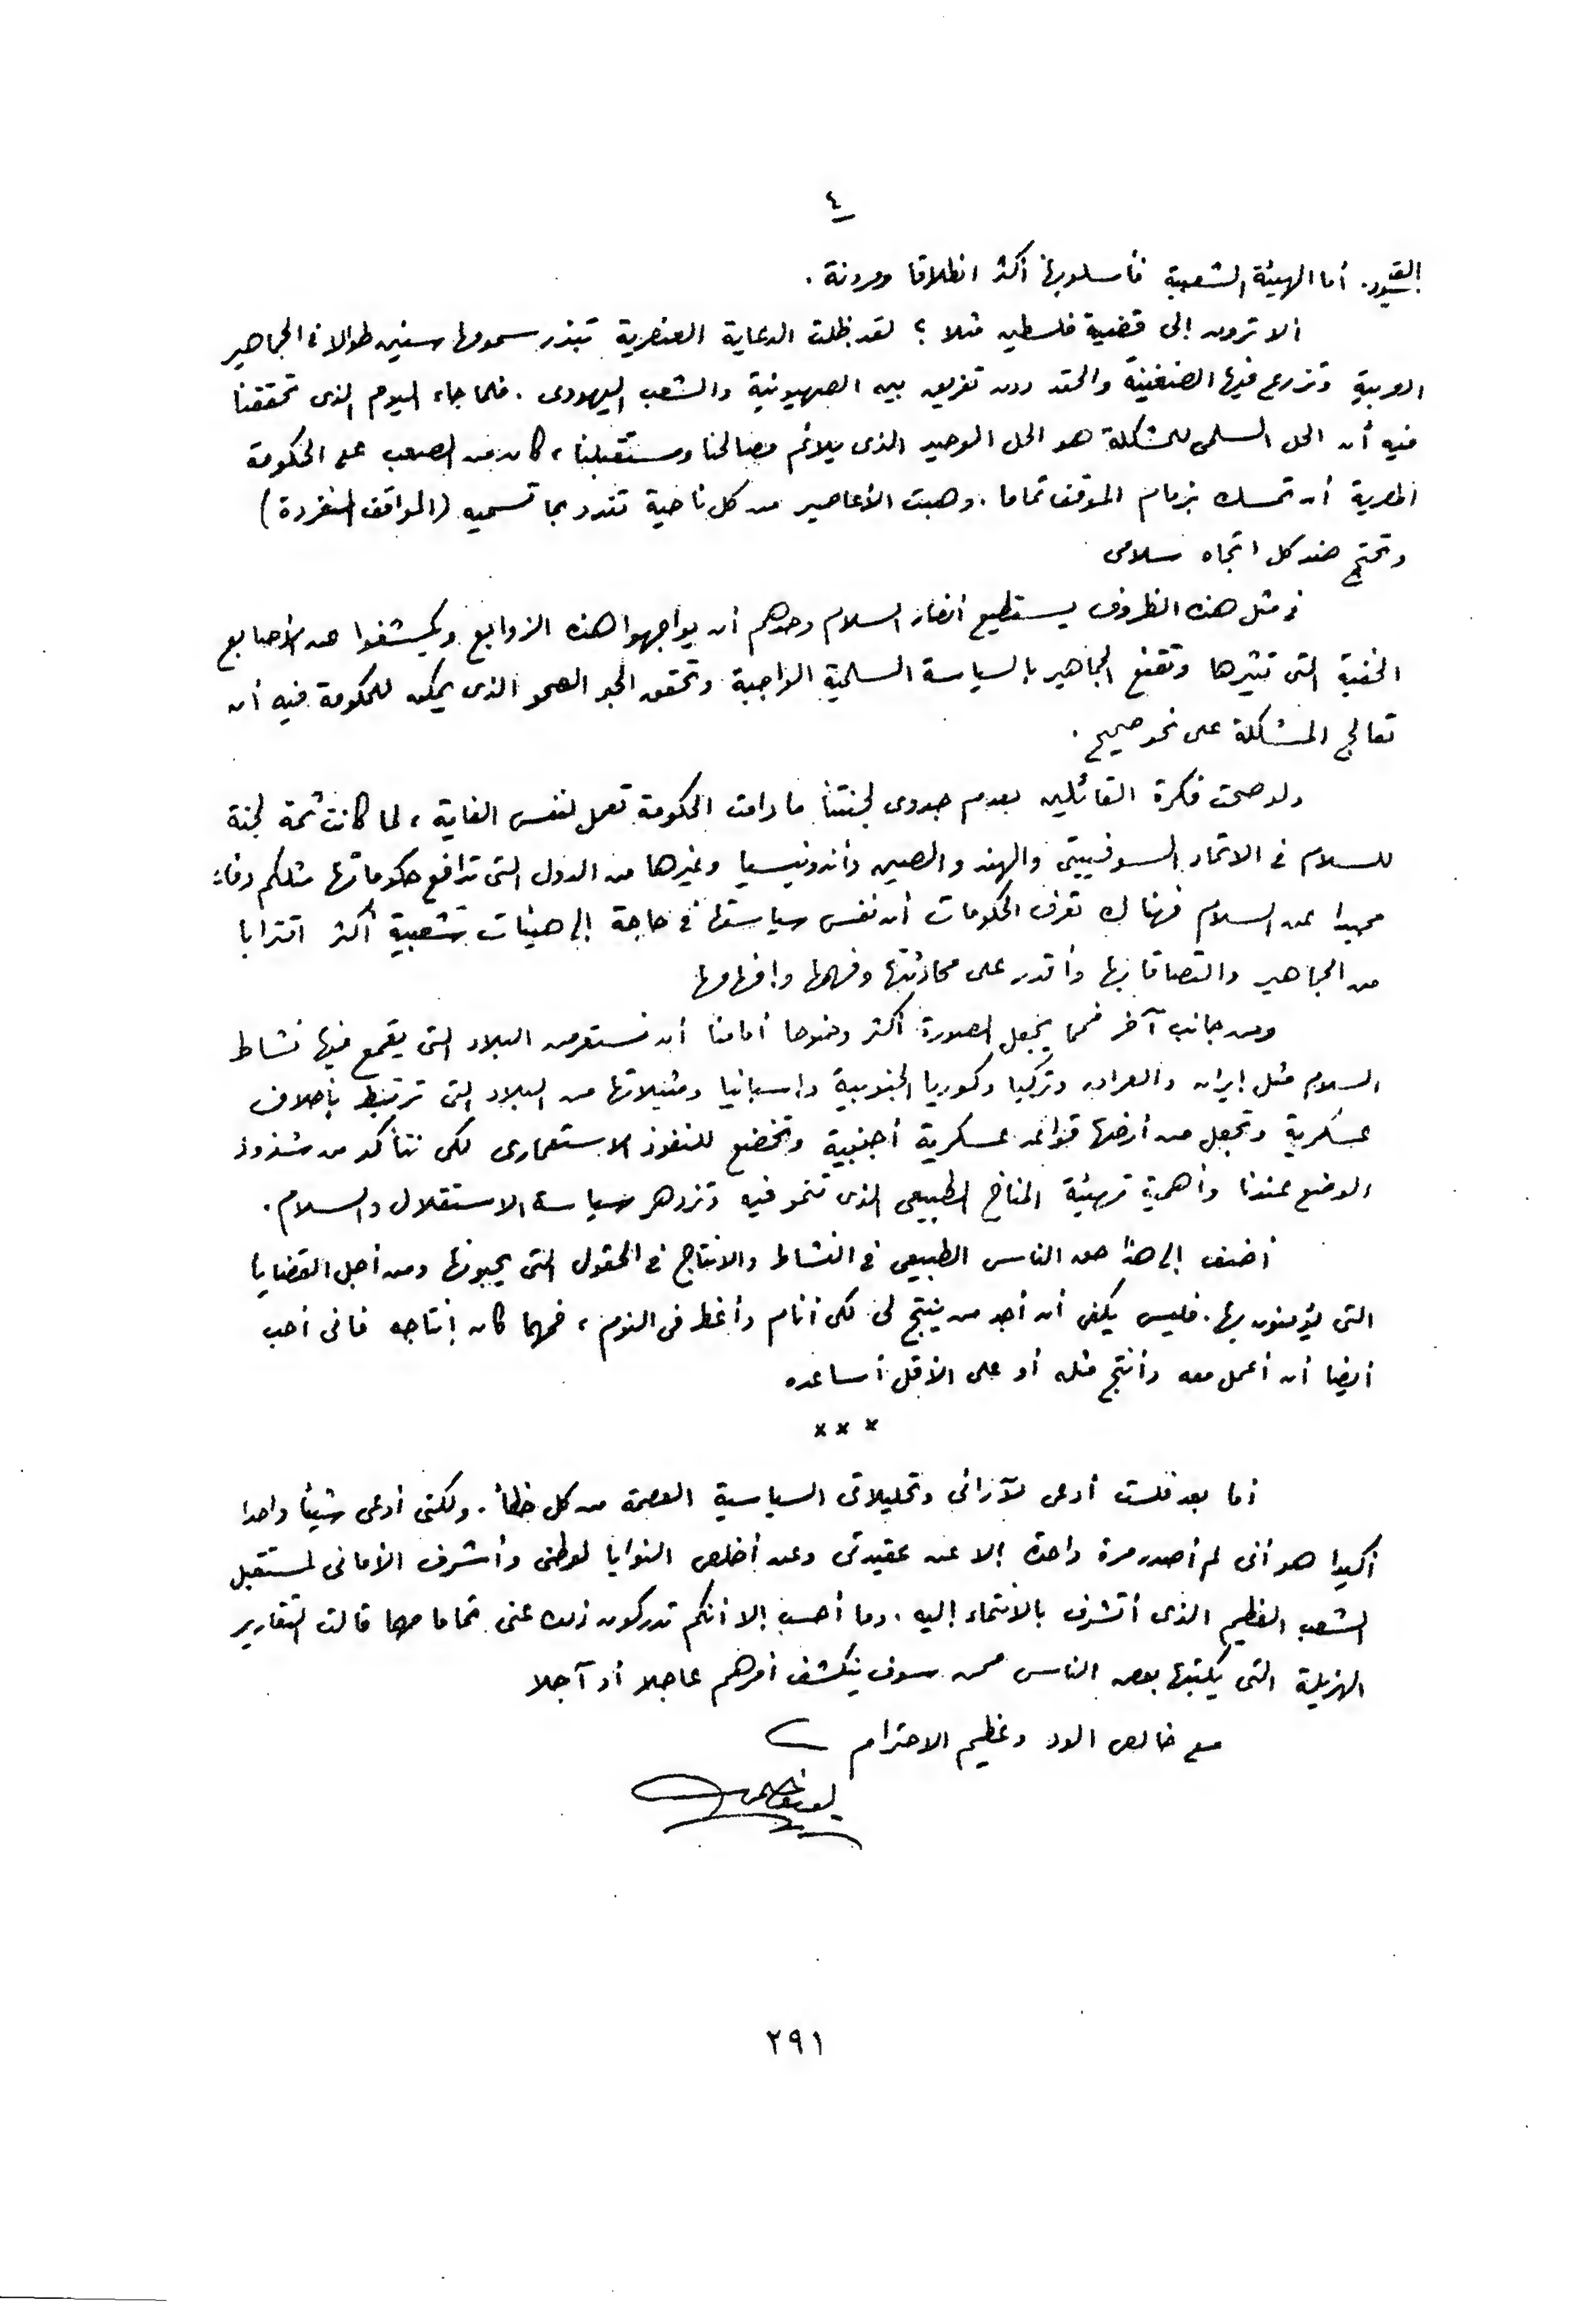 ٤
القيود. أما الهيئة الشعبية فأسلوبها أكثر انطلاقا ومرونة.
ألا ترون إلى قضية فلسطين مثلا ؟ لقد ظلت الدعاية العنصرية تبذر سمومها سنين طوالا في الجماهير
العربية وتزرع فيها الضغينة والحقد دون تفريق بين الصهيونية والشعب اليهودى. فلما جاء اليوم الذى تحققنا
فيه أن الحل السلمى للمشكلة هو الحل الوحيد الذى يلائم مصالحنا ومستقبلنا، كان من الصعب على الحكومة
المصرية أن تمسك بزمام الموقف تماما. وهبت الأعاصير من كل ناحية تندد بما تسميه (المواقف المنفردة)
وتحتج ضد كل اتجاه سلامى
فى مثل هذه الظروف يستطيع أنصار السلام وحدهم أن يواجهوا هذه الزوابع ويكشفوا عن الأصابع
الخفية التى تثيرها وتقنع الجماهير بالسياسة السلمية الواجبة وتحقق الجو الصحو الذى يمكن للحكومة فيه أن
تعالج المشكلة على نحو صحيح.
ولو صحت فكرة القائلين بعدم جدوى لجنتنا ما دامت الحكومة تعمل لنفس الغاية، لما كانت ثمة لجنة
للسلام فى الاتحاد السوفييتى والهند والصين وأندونيسيا وغيرها من الدول التى تدافع حكوماتها مثلكم دفاعا
مجيدا عن السلام فهناك تعرف الحكومات أن نفس سياستها فى حاجة إلى هيئات شعبية أكثر اقترابا
من الجماهير والتصاقا بها وأقدر على محادثتها وفهمها وإفهامها
ومن جانب آخر فمما يجعل الصورة أكثر وضوحا أمامنا أن نستعرض البلاد التى يقمع فيها نشاط
السلام مثل إيران والعراق وتركيا وكوريا الجنوبية واسبانيا ومثيلاتها من البلاد التى ترتبط بأحلاف
عسكرية وتجعل من أرضها قواعد عسكرية أجنبية وتخضع للنفوذ الاستعمارى لكى نتأكد من شذوذ
الوضع عندنا وأهمية تهيئة المناخ الطبيعى الذى تنمو فيه وتزدهر سياسة الاستقلال والسلام.
أضف إلى هذا حق الناس الطبيعى فى النشاط والانتاج فى الحقول التى يحبونها ومن أجل القضايا
التى يؤمنون بها. فليس يكفى أن أجد من ينتج لى لكى أنام وأغط فى النوم، فمهما كان إنتاجه فانى أحب
أيضا أن أعمل معه وأنتج مثله أو على الأقل أساعده
× × ×
أما بعد فلست أدعى لآرائى وتحليلاتى السياسية العصمة من كل خطأ. ولكنى أدعى شيئا واحدا
أكيدا هو أنى لم أصدر مرة واحدة إلا عن عقيدتى وعن أخلص النوايا لوطنى وأشرف الأمانى لمستقبل
الشعب العظيم الذى أتشرف بالانتماء إليه. وما أحسب إلا أنكم تدركون ذلك عنى تماما مهما قالت التقارير
الهزيلة التى يكتبها بعض الناس ممن سوف ينكشف أمرهم عاجلا أو آجلا
مع خالص الود وعظيم الاحترام
٢٩١